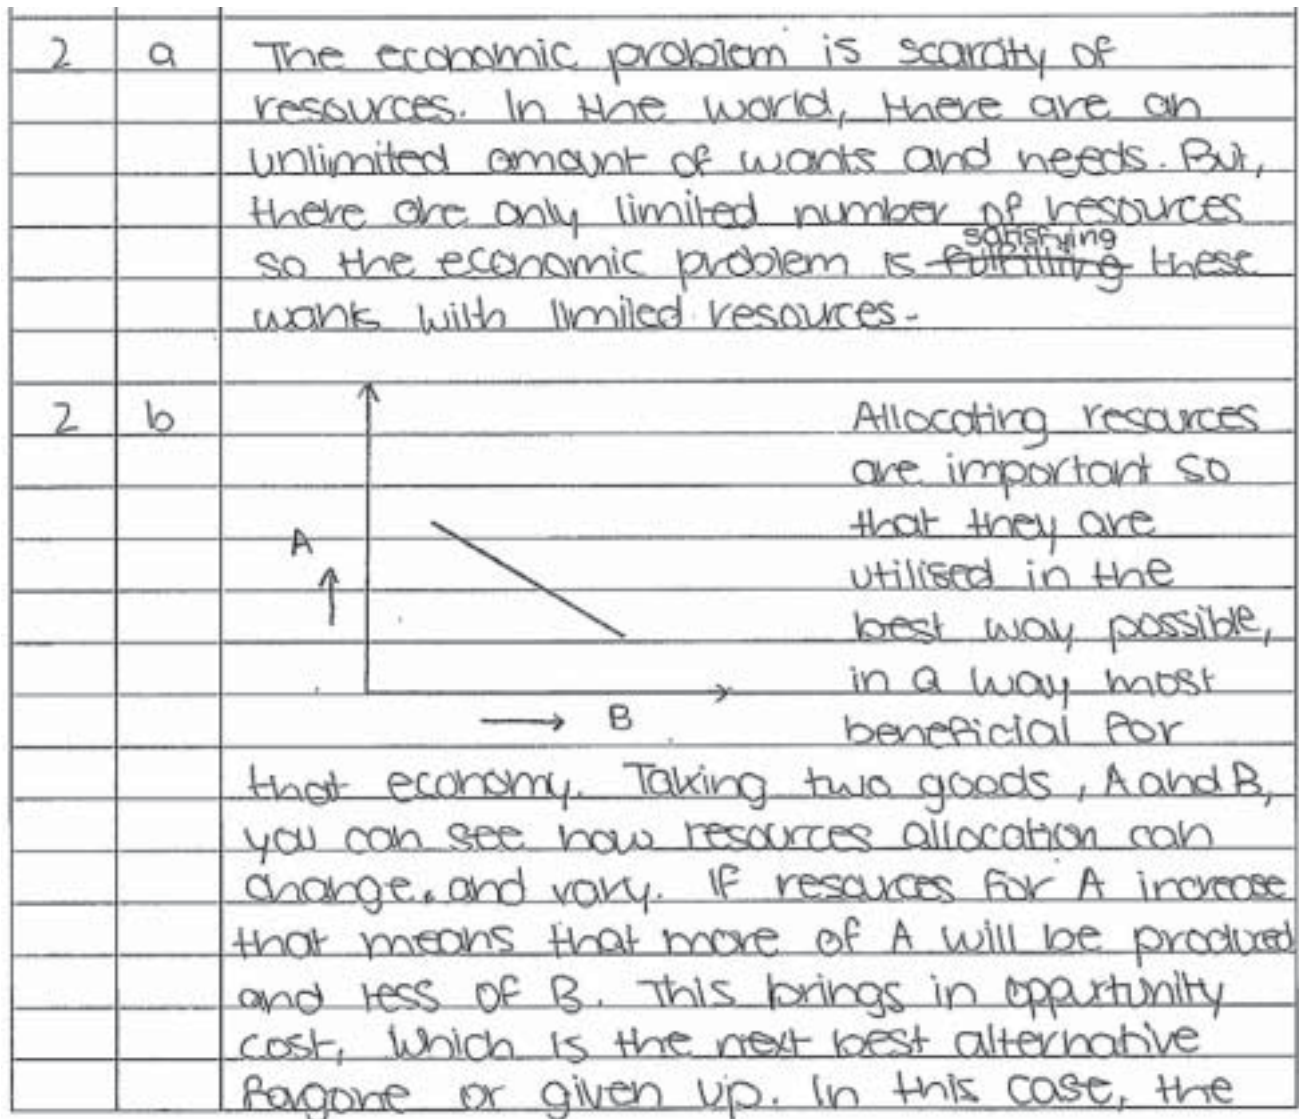 2 a The economic problem is scarcity of
resources. In the world, there are an
unlimited amount of wants and needs. But,
there are only limited number of resources
satisfying
so the economic problem is fulfilling these
wants with limited resources.
2 b Allocating resources
are important so
that they are
A
utilised in the
best way possible,
in a way most
B
beneficial for
that economy. Taking two goods, A and B,
you can see how resources allocation can
change. and vary. If resources for A increase
that means that more of A will be produced
and less of B. This brings in oppurtunity
cost, which is the next best alternative
forgone or given up. In this case, the